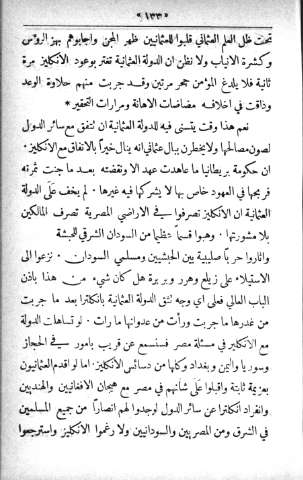 ﴿١٣٣﴾
تحت ظل العلم العثماني قلبوا للعثمانيين ظهر المجن واجابوهم بهز الرؤس
وكشرة الانياب ولا نظن ان الدولة العثمانية تغتر بوعود الانكليز مرة
ثانية فلا يلدغ المؤمن من جحر مرتين وقد جربت منهم حلاوة الوعد
وذاقت في اخلافه مضاضات الاهانة ومرارات التحقير *
نعم هذا وقت يتسنى فيه للدولة العثمانية ان تتفق مع سائر الدول
لصون مصالحها ولا يخطرن ببال عثماني انه ينال خيراً بالاتفاق مع الانكليز ·
ان حكومة بريطانيا ما عاهدت عهد الا ونقضته بعد ما جنت ثمرته
فربحها في العهود خاص بها لا يشركها فيه غيرها · لم يخف على الدولة
العثمانية ان الانكليز تصرفوا في الاراضي المصرية تصرف المالكين
بلا مشورتها · وهبوا قسماً عظيما من السودان الشرقي للحبشة
واثاروا حرباً صليبية بين الحبشيين ومسلمي السودان · نزعوا الى
الاستيلاء على زيلع وهرر وبربرة هل كان شيء من هذا باذن
الباب العالي فعلى اي وجه تثق الدولة العثمانية بانكلترا بعد ما جربت
من غدرها ما جربت ورأت من عدوانها ما رات · لو تساهلت الدولة
مع الانكليز في مسئلة مصر فستسمع عن قريب بامور في الحجاز
وسوريا واليمن وبغداد وكلها من دسائس الانكليز · اما لو اقدم العثمانيون
بعزيمة ثابتة واقبلوا على شانهم في مصر مع هيجان الافغانيين والهنديين
وانفراد انكلترا عن سائر الدول لوجدوا لهم انصاراً من جميع المسلمين
في الشرق ومن المصريين والسودانيين ولا رغموا الانكليز واسترجعوا